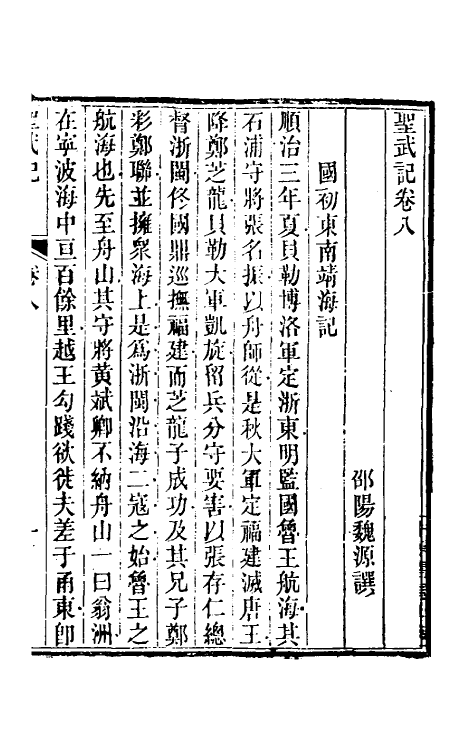 聖武記卷八
邵陽魏源譔
國初東南靖海記
順治三年夏貝勒博洛軍定浙東明監國魯王航海其
石浦守將張名振以舟師從是秋大軍定福建滅唐王
降鄭芝龍貝勒大軍凱旋留兵分守要害以張存仁總
督浙閩佟國鼎巡撫福建而芝龍子成功及其兄子鄭
彩鄭聯並擁衆海上是爲浙閩沿海二寇之始魯王之
航海也先至舟山其守將黃斌卿不納舟山一曰翁洲
在寧波海中亘百餘里越王勾踐欲徙夫差于甬東卽
聖武記
卷八
一